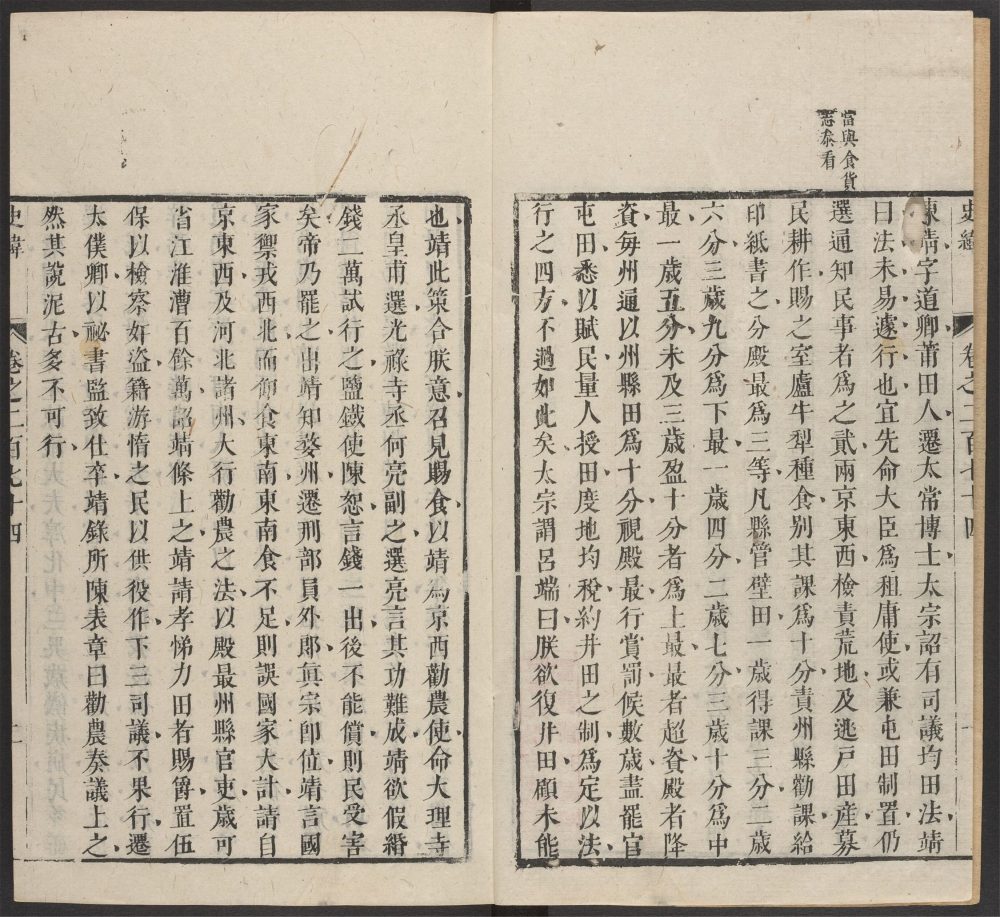 當與食貨
志泰看
史緯
卷之二百七十四
一
陳靖字道卿莆田人遷太常博士太宗詔有司議均田法靖
曰法未易遽行也宜先命大臣爲租庸使或兼屯田制置仍
選通知民事者爲之貳兩京東西檢責荒地及逃戸田産募
民耕作賜之室廬牛犁種食别其課爲十分責州縣勸課給
印紙書之分殿最爲三等凡縣管墾田一歲得課三分二歲
六分三歲九分爲下最一歲四分二歲七分三歲十分爲中
最一歲五分未及三歲盈十分者爲上最最者超資殿者降
資每州通以州縣田爲十分視殿最行賞罰候數歲盡罷官
屯田悉以賦民量人授田度地均稅約井田之制爲定以法
行之四方不過如此矣太宗謂呂端曰朕欲復井田顧未能
也靖此策合朕意召見賜食以靖爲京西勸農使命大理寺
丞皇甫選光祿寺丞何亮副之選亮言其功難成靖欲假緡
錢二萬試行之鹽鐵使陳恕言錢一出後不能償則民受害
矣帝乃罷之出靖知婺州遷刑部員外郎真宗卽位靖言國
家禦戎西北而仰食東南東南食不足則誤國家大計請自
京東西及河北諸州大行勸農之法以殿最州縣官吏歲可
省江淮漕百餘萬詔靖條上之靖請孝悌力田者賜爵置伍
保以檢察奸盜籍游惰之民以供役作下三司議不果行遷
太僕卿以祕書監致仕卒靖錄所陳表章曰勸農奏議上之
然其說泥古多不可行
史緯
卷之二百七十四
二